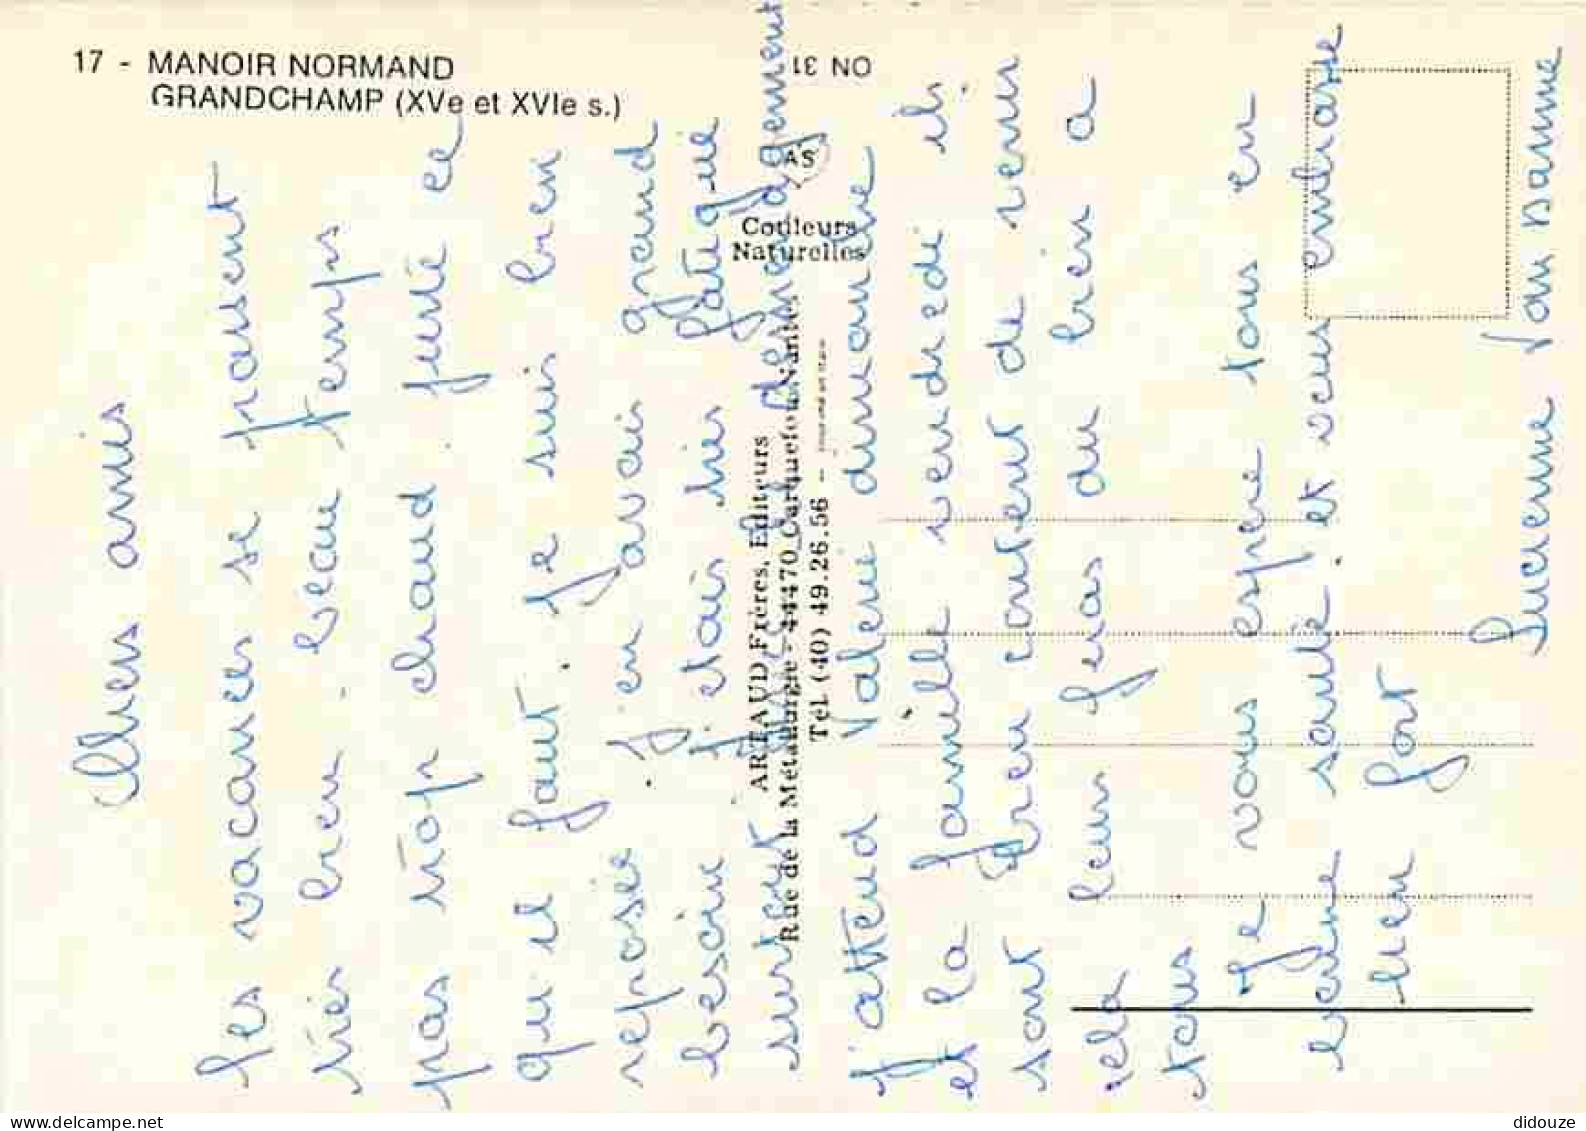 17 - MANOIR NORMAND
GRANDCHAMP (XVe et XVIe s.)
ON 31
AS
Couleurs
Naturelles
ARTAUD Frères, Editeurs
Rue de la Métallurgie - 44470 Carquefou-Nantes
Tél. (40) 49.26.56 -
Chers amis
Les vacances se passent
très bien. beau temps
pas trop chaud. juste ce
qu il faut. Je suis bien
reposée. J'en avais grand
besoin j'etais très fatiguée
surtout
J'attend Valerie dimanche
et la famille vendredi ils
sont bien content de venir
cela leur feras du bien a
tous
Je vous espère tous en
bonne santé. et vous embrasse
bien fort
Lucienne Van Damme
didouze